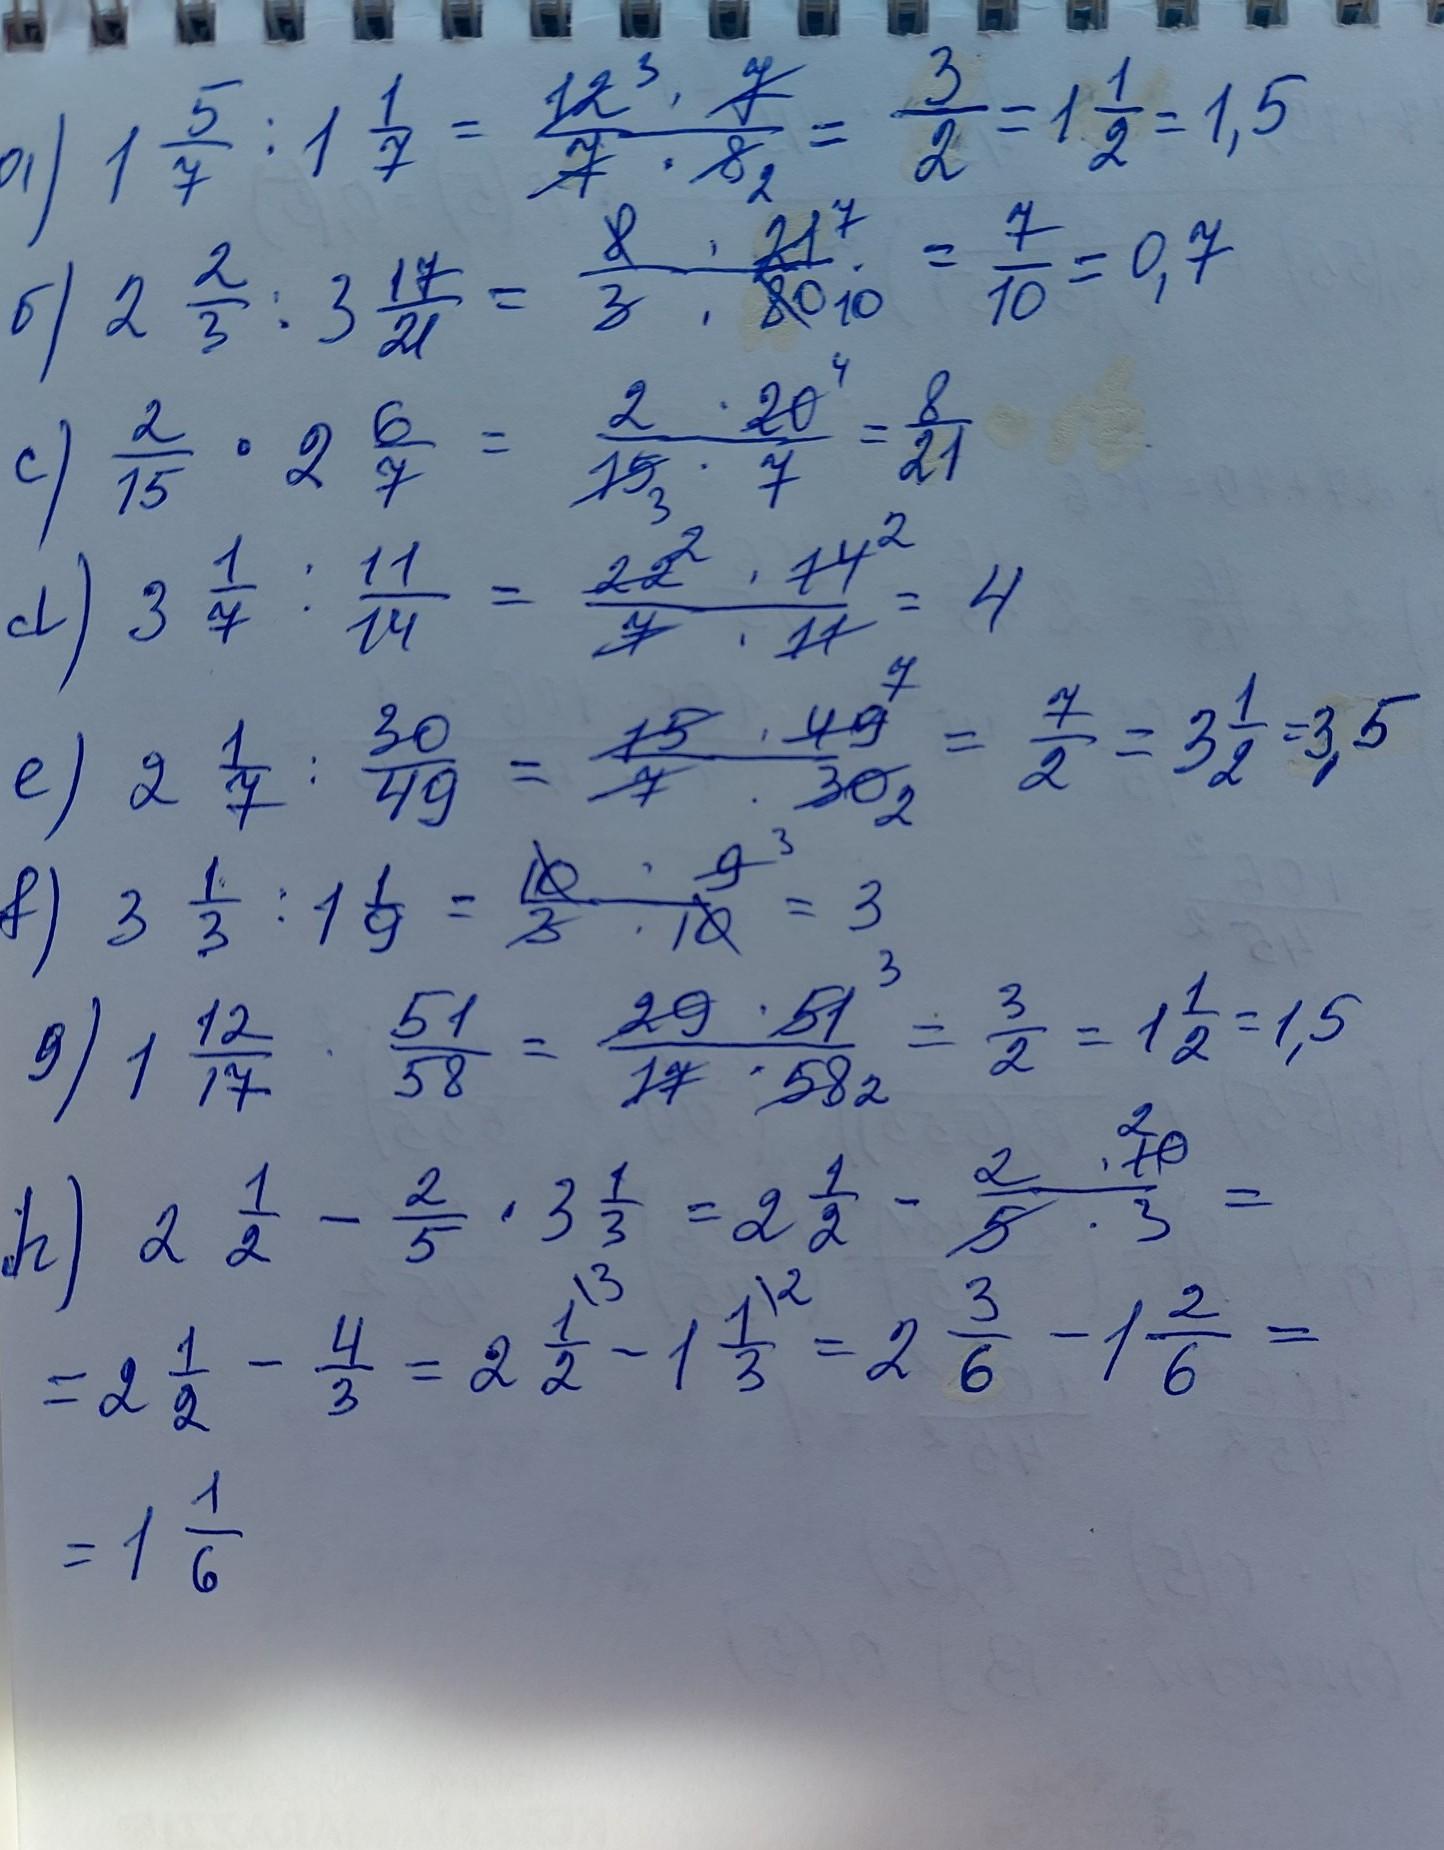 а) 1 5/7 : 1 1/7 = 12³ · 7 / 7 · 8₂ = 3/2 = 1 1/2 = 1,5
б) 2 2/3 : 3 17/21 = 8 · 21⁷ / 3 · 80₁₀ = 7/10 = 0,7
c) 2/15 · 2 6/7 = 2 · 20⁴ / 15₃ · 7 = 8/21
d) 3 1/7 : 11/14 = 22² · 14² / 7 · 11 = 4
e) 2 1/7 : 30/49 = 15 · 49⁷ / 7 · 30₂ = 7/2 = 3 1/2 = 3,5
f) 3 1/3 : 1 1/9 = 10 · 9³ / 3 · 10 = 3
g) 1 12/17 · 51/58 = 29 · 51³ / 17 · 58₂ = 3/2 = 1 1/2 = 1,5
h) 2 1/2 - 2/5 · 3 1/3 = 2 1/2 - 2 · 10² / 5 · 3 =
= 2 1/2 - 4/3 = 2 1/2 \3 - 1 1/3 \2 = 2 3/6 - 1 2/6 =
= 1 1/6